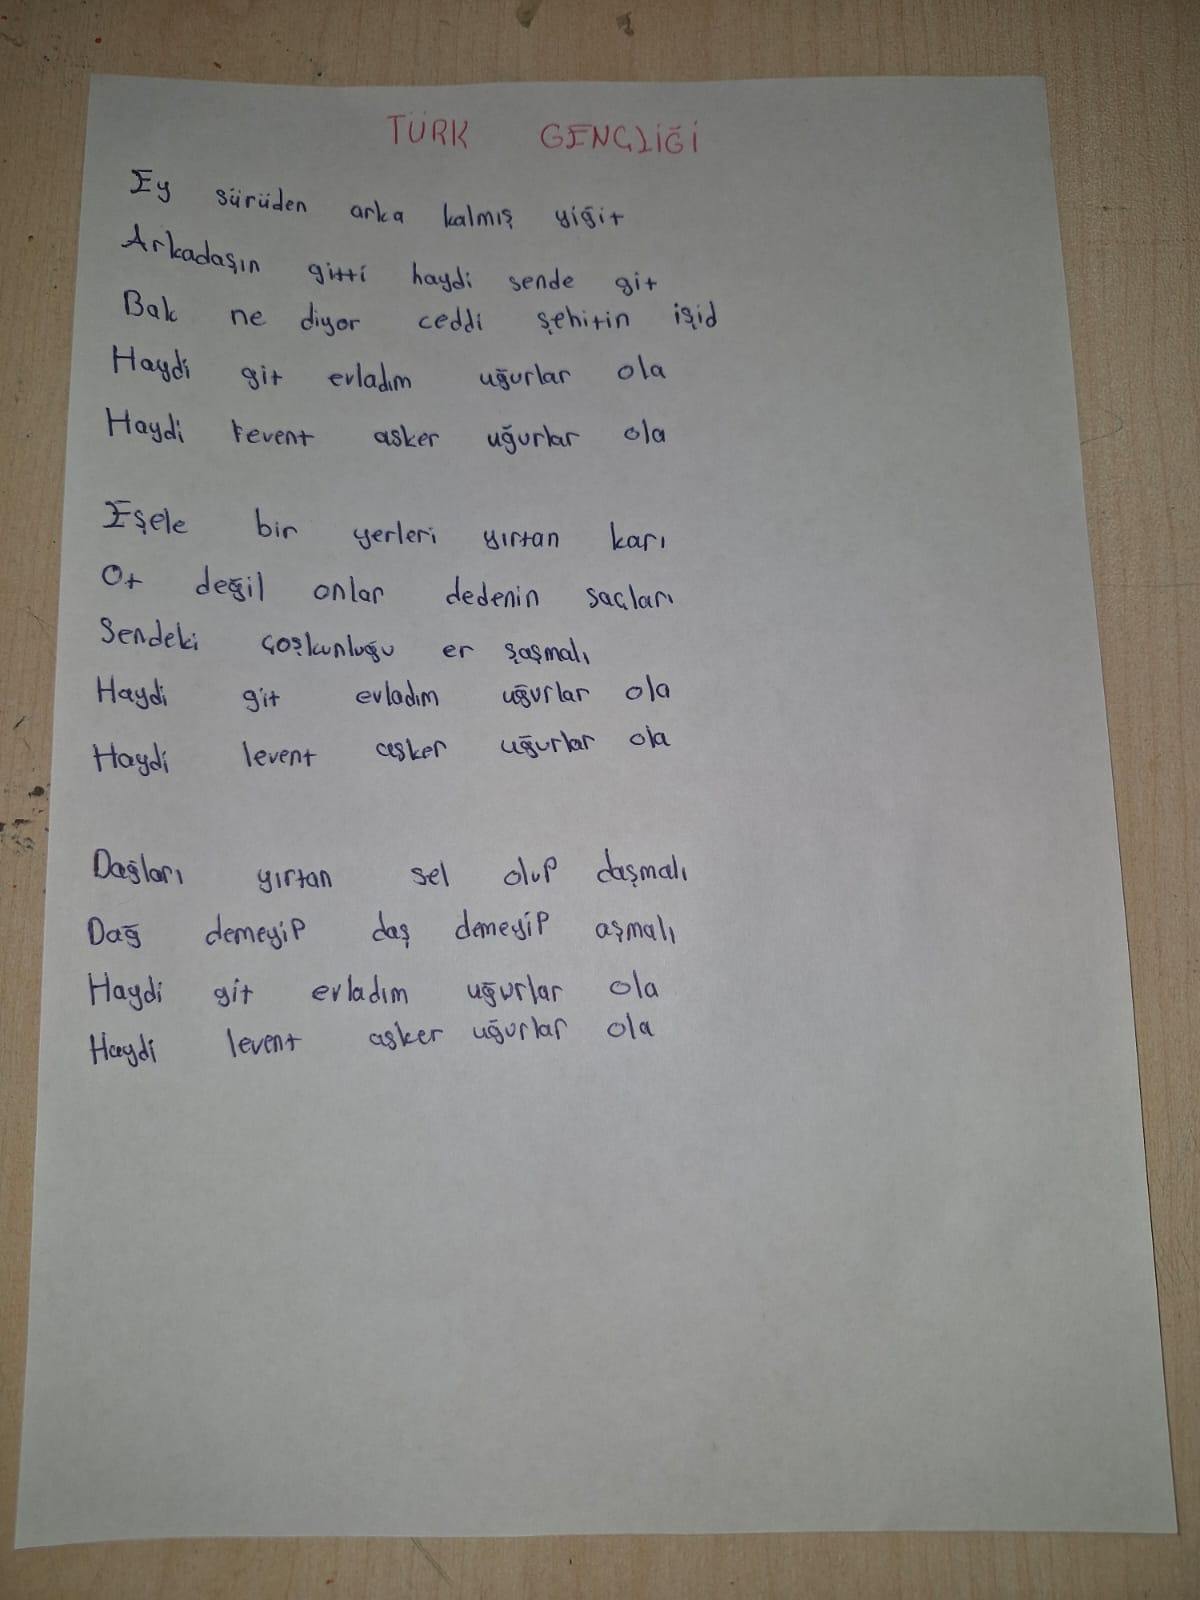 TÜRK GENÇLİĞİ
Ey sürüden arka kalmış yiğit
Arkadaşın gitti haydi sende git
Bak ne diyor ceddi şehitin işid
Haydi git evladım uğurlar ola
Haydi levent asker uğurlar ola
Eşele bir yerleri yırtan karı
Ot değil onlar dedenin saçları
Sendeki çoşkunluğu er şaşmalı
Haydi git evladım uğurlar ola
Haydi levent asker uğurlar ola
Dağları yırtan sel olup daşmalı
Dağ demeyip daş demeyip aşmalı
Haydi git evladım uğurlar ola
Haydi levent asker uğurlar ola